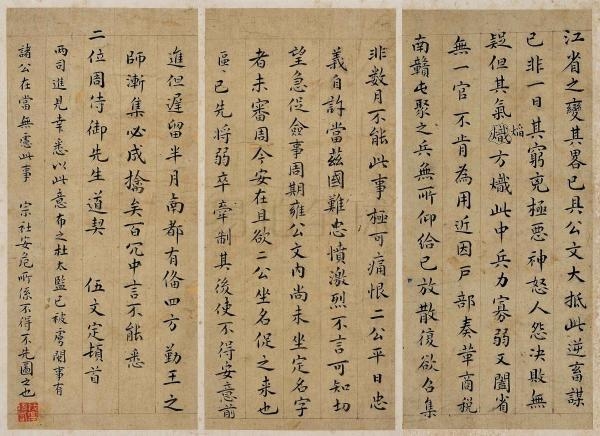 江省之變其畧已具公文大抵此逆畜謀
已非一日其窮兇極惡神怒人怨決敗無
疑但其氣熾方熾此中兵力寡弱又闔省
焰
無一官不肯為用近因戶部奏革商稅
南贛屯聚之兵無所仰給已放散復欲召集
非數月不能此事極可痛恨二公平日忠
義自許當茲國難忠憤激烈不言可知切
望急促僉事周期雍公文內尚未坐定名字
者未審周今安在且欲二公坐名促之來也
區、已先將弱卒牽制其後使不得安意前
進但遲留半月南都有備四方勤王之
師漸集必成擒矣百冗中言不能悉
二位周侍御先生道契 伍文定頓首
兩司進見幸悉以此意布之杜太監已被虜閣事有
諸公在當無慮此事 宗社安危所係不得不先圖之也